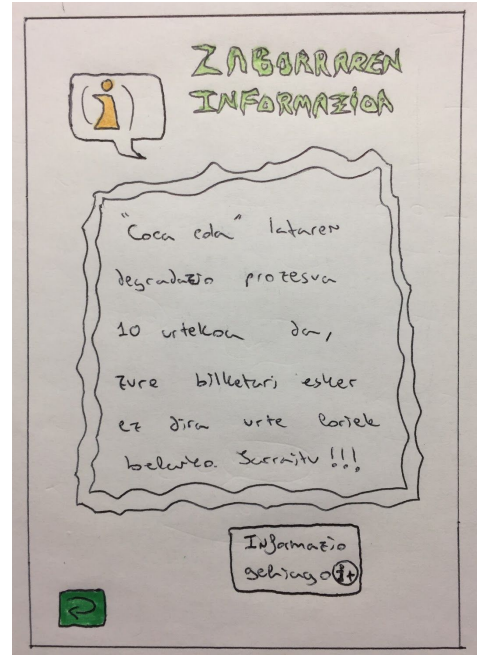 ZABORRAREN
INFORMAZIOA
(i)
"Coca cola" lataren
degradazio prozesua
10 urtekoa da,
zure bilketari esker
ez dira urte horiek
beharko. Jarraitu !!!
Informazio
gehiago i+